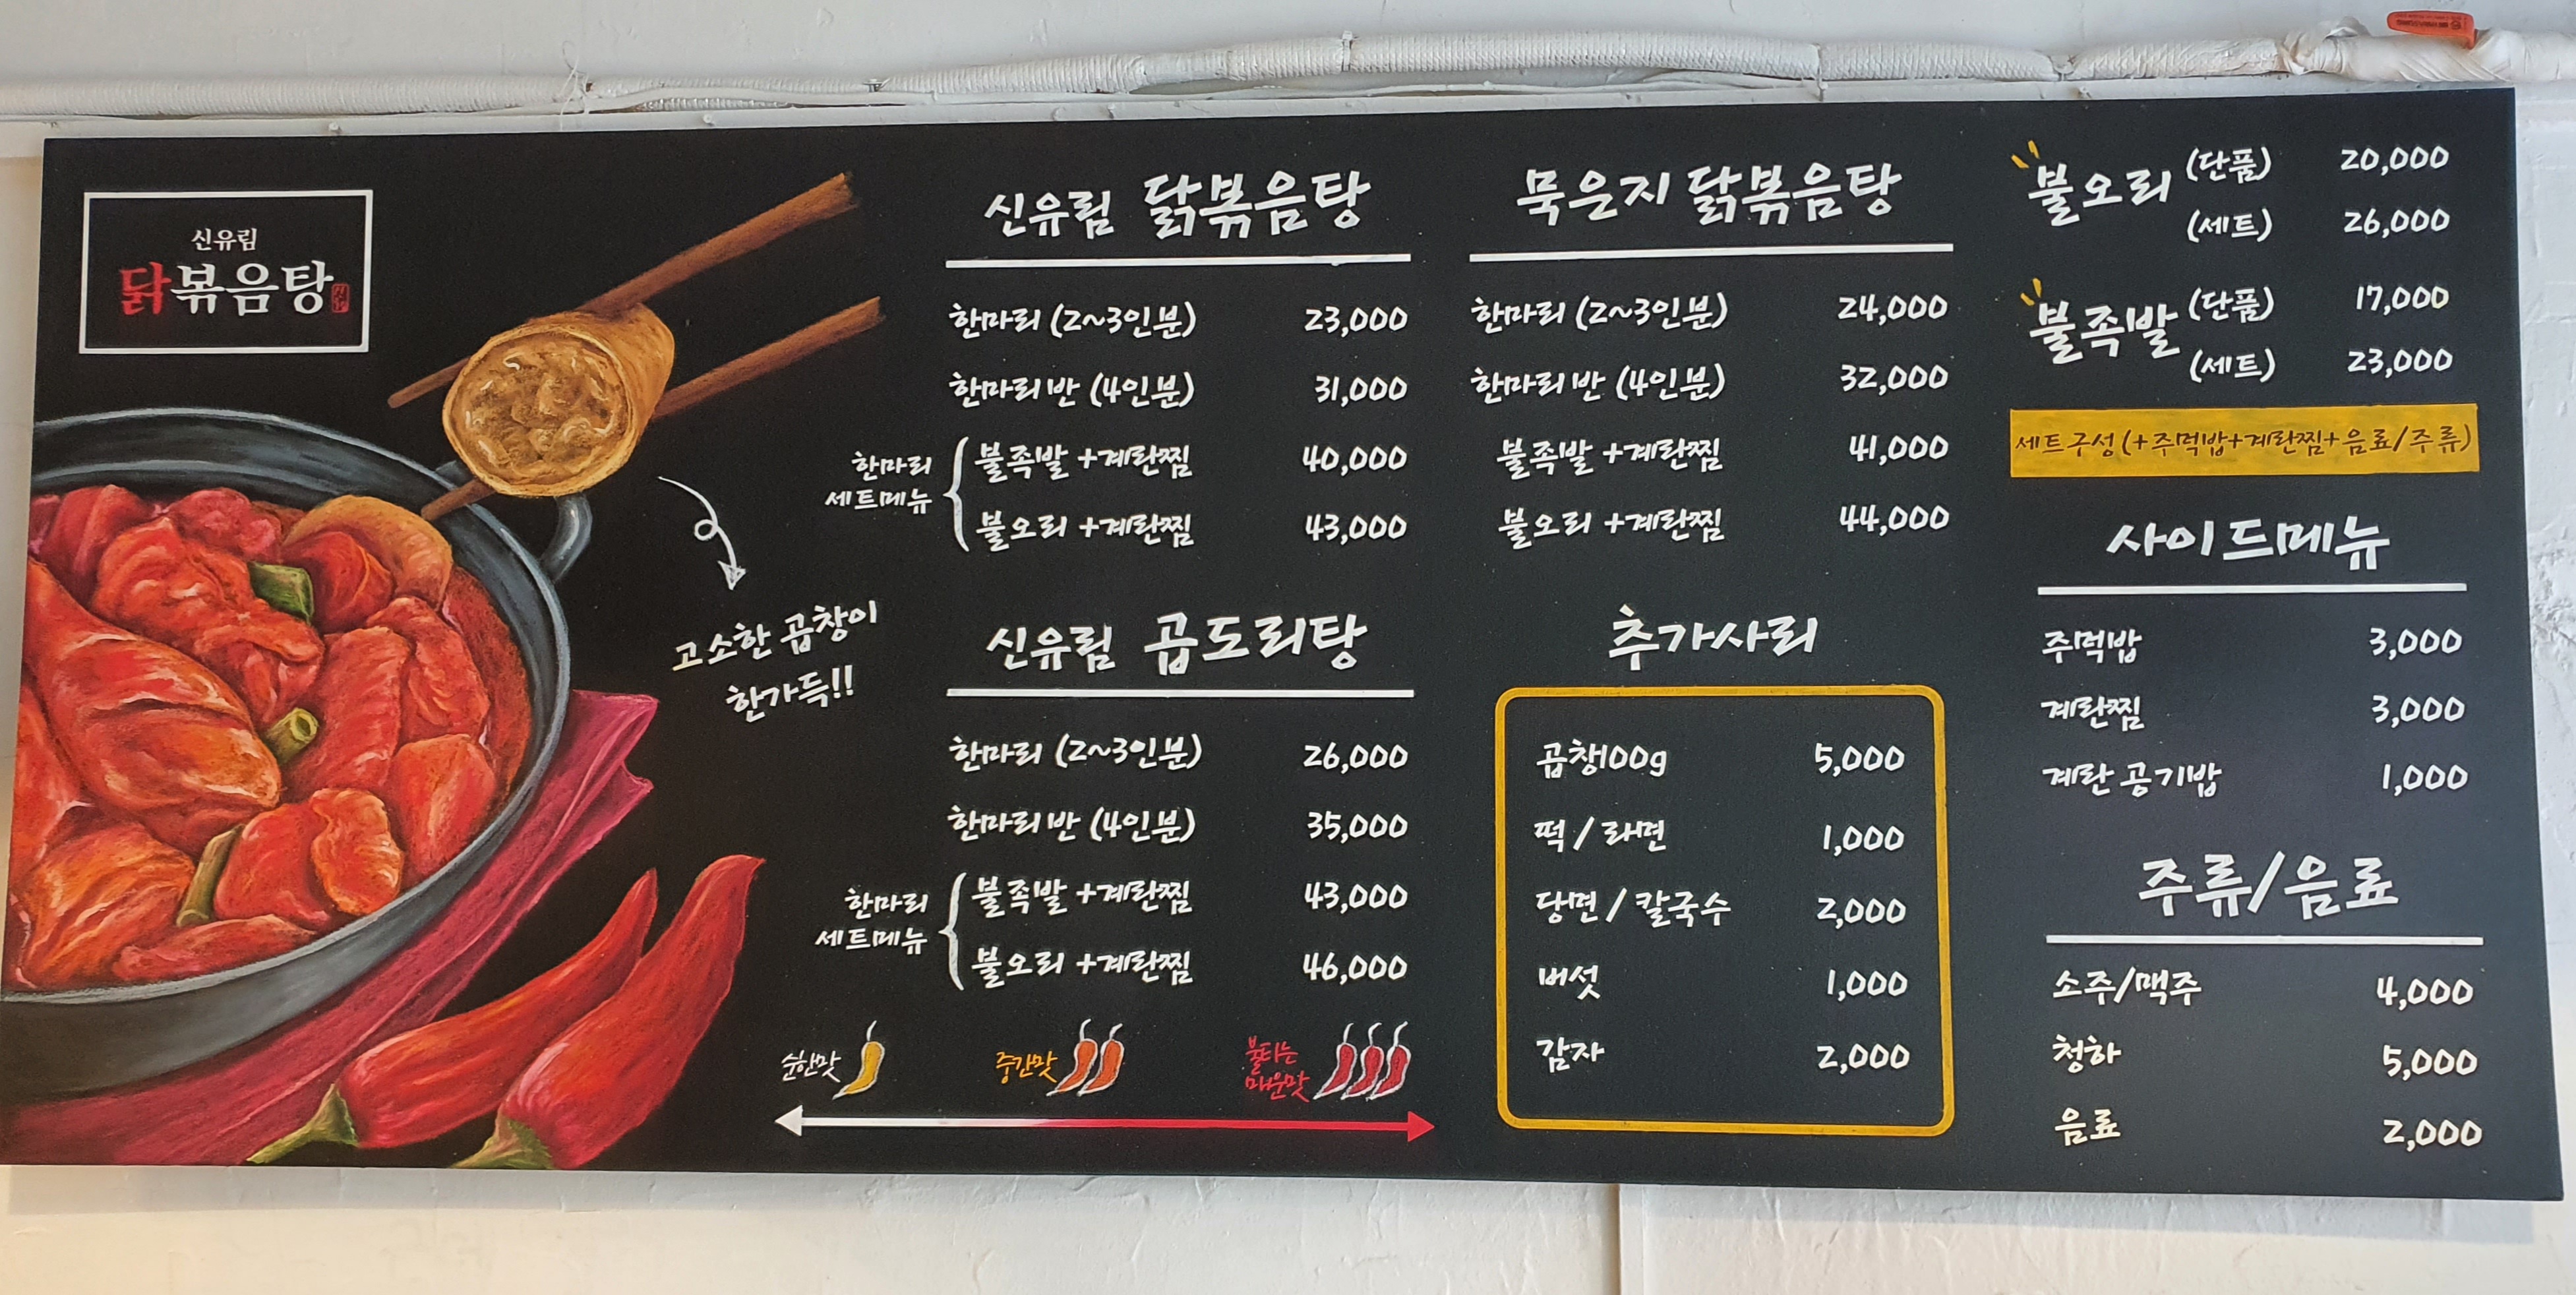 신유림
닭볶음탕
고소한 곱창이
한가득!!
신유림 닭볶음탕
한마리 (2~3인분) 23,000
한마리반 (4인분) 31,000
한마리
세트메뉴
불족발 +계란찜 40,000
불오리 +계란찜 43,000
신유림 곱도리탕
한마리 (2~3인분) 26,000
한마리반 (4인분) 35,000
한마리
세트메뉴
불족발 +계란찜 43,000
불오리 +계란찜 46,000
순한맛
중간맛
불타는
매운맛
묵은지 닭볶음탕
한마리 (2~3인분) 24,000
한마리반 (4인분) 32,000
불족발 +계란찜 41,000
불오리 +계란찜 44,000
추가사리
곱창100g 5,000
떡/라면 1,000
당면/칼국수 2,000
버섯 1,000
감자 2,000
불오리 (단품) 20,000
(세트) 26,000
불족발 (단품) 17,000
(세트) 23,000
세트구성 (+주먹밥+계란찜+음료/주류)
사이드메뉴
주먹밥 3,000
계란찜 3,000
계란 공기밥 1,000
주류/음료
소주/맥주 4,000
청하 5,000
음료 2,000